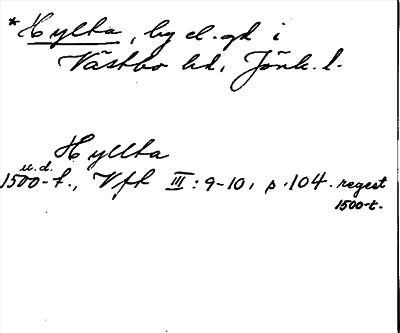 *Hylta, by el. gd i
Västbo hd, Jönk. l.
Hyllta
u.d.
1500-t., Vfk III: 9-10, p. 104. regest
1500-t.